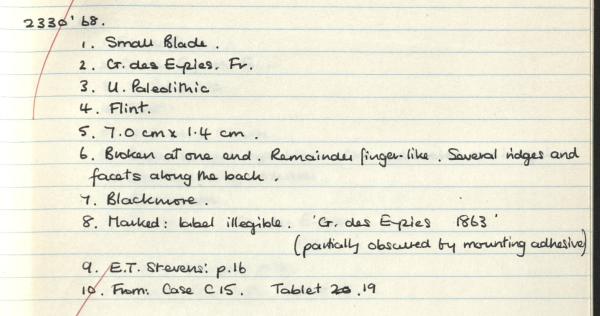 2330'68.
1. Small Blade.
2. G. des Eyzies. Fr.
3. U. Paleolithic
4. Flint.
5. 7.0 cm x 1.4 cm.
6. Broken at one end. Remainder finger-like. Several ridges and
facets along the back.
7. Blackmore.
8. Marked: label illegible. 'G. des Eyzies 1863'
(partially obscured by mounting adhesive)
9. E.T. Stevens: p.16
10. From: Case C15. Tablet 20.19